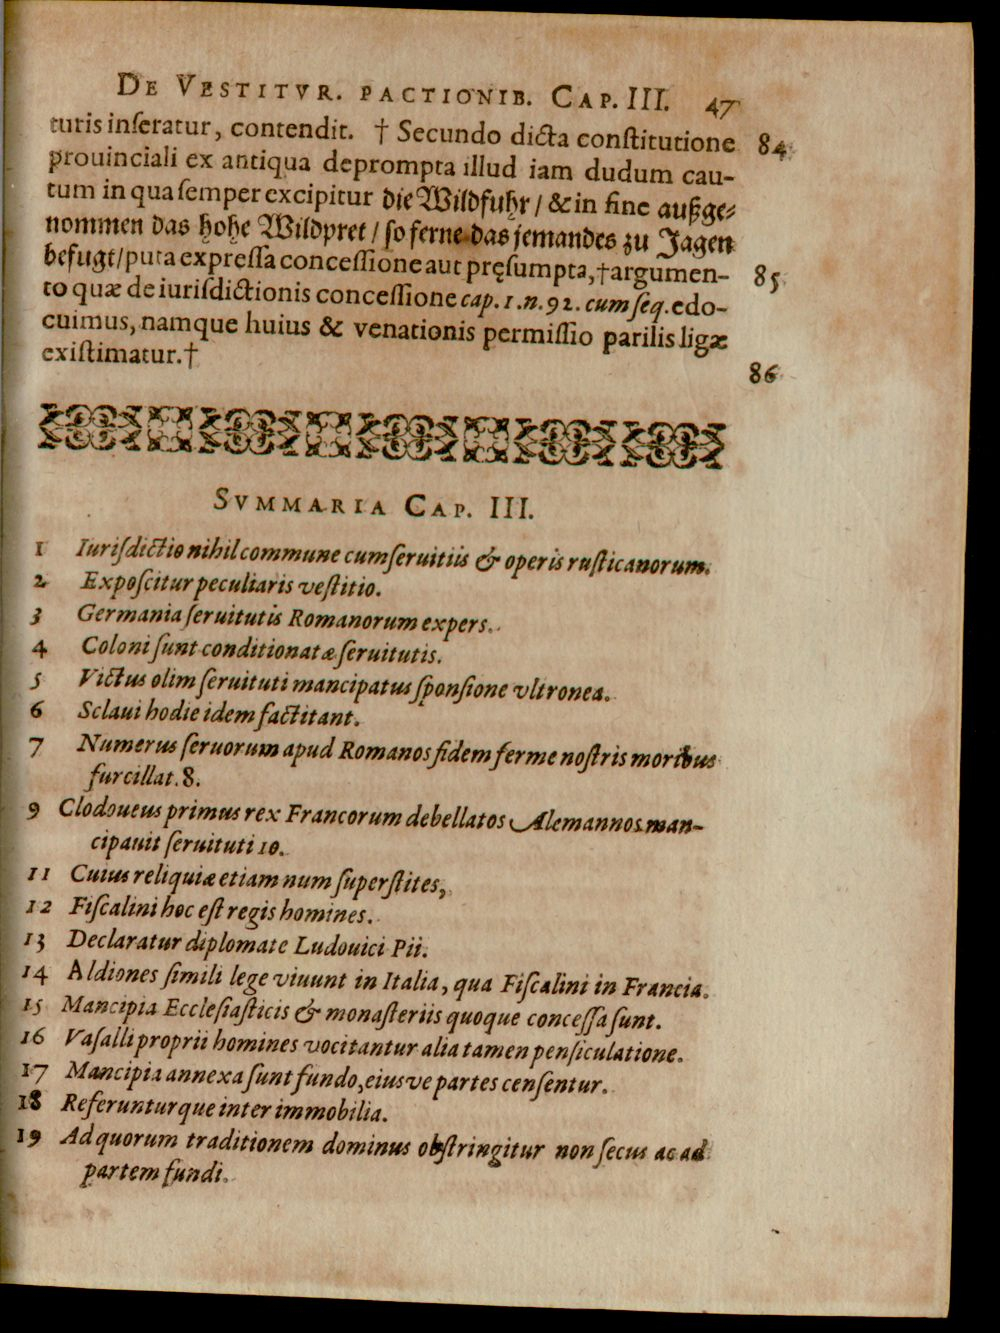 DE VESTITVR. PACTIONIB. CAP. III. 47
turis inſeratur, contendit. † Secundo dicta conſtitutione 84
prouinciali ex antiqua deprompta illud iam dudum cau-
tum in qua ſemper excipitur die Wildfuhr / & in fine außge-
nommen das hohe Wildpret / ſo ferne das jemandes zu Jagen
befugt / puta expreſſa conceſſione aut pręſumpta, † argumen- 85
to quæ de iurisdictionis conceſſione cap. 1. n. 92. cum ſeq. edo-
cuimus, namque huius & venationis permiſſio parilis ligæ
exiſtimatur. † 86
SVMMARIA CAP. III.
1 Iuriſdictio nihil commune cum ſeruitiis & operis ruſticanorum.
2 Expoſcitur peculiaris veſtitio.
3 Germania ſeruitutis Romanorum expers.
4 Coloni ſunt conditionatæ ſeruitutis.
5 Victus olim ſeruituti mancipatus ſponſione vltronea.
6 Sclaui hodie idem factitant.
7 Numerus ſeruorum apud Romanos fidem ferme noſtris moribus
furcillat. 8.
9 Clodoueus primus rex Francorum debellatos Alemannos man-
cipauit ſeruituti 10.
11 Cuius reliquiæ etiam num ſuperſtites,
12 Fiſcalini hoc eſt regis homines.
13 Declaratur diplomate Ludouici Pii.
14 Aldiones ſimili lege viuunt in Italia, qua Fiſcalini in Francia.
15 Mancipia Eccleſiaſticis & monaſteriis quoque conceſſa ſunt.
16 Vaſalli proprii homines vocitantur alia tamen penſiculatione.
17 Mancipia annexa ſunt fundo, eiusve partes cenſentur.
18 Referunturque inter immobilia.
19 Ad quorum traditionem dominus obſtringitur non ſecus ac ad
partem fundi.